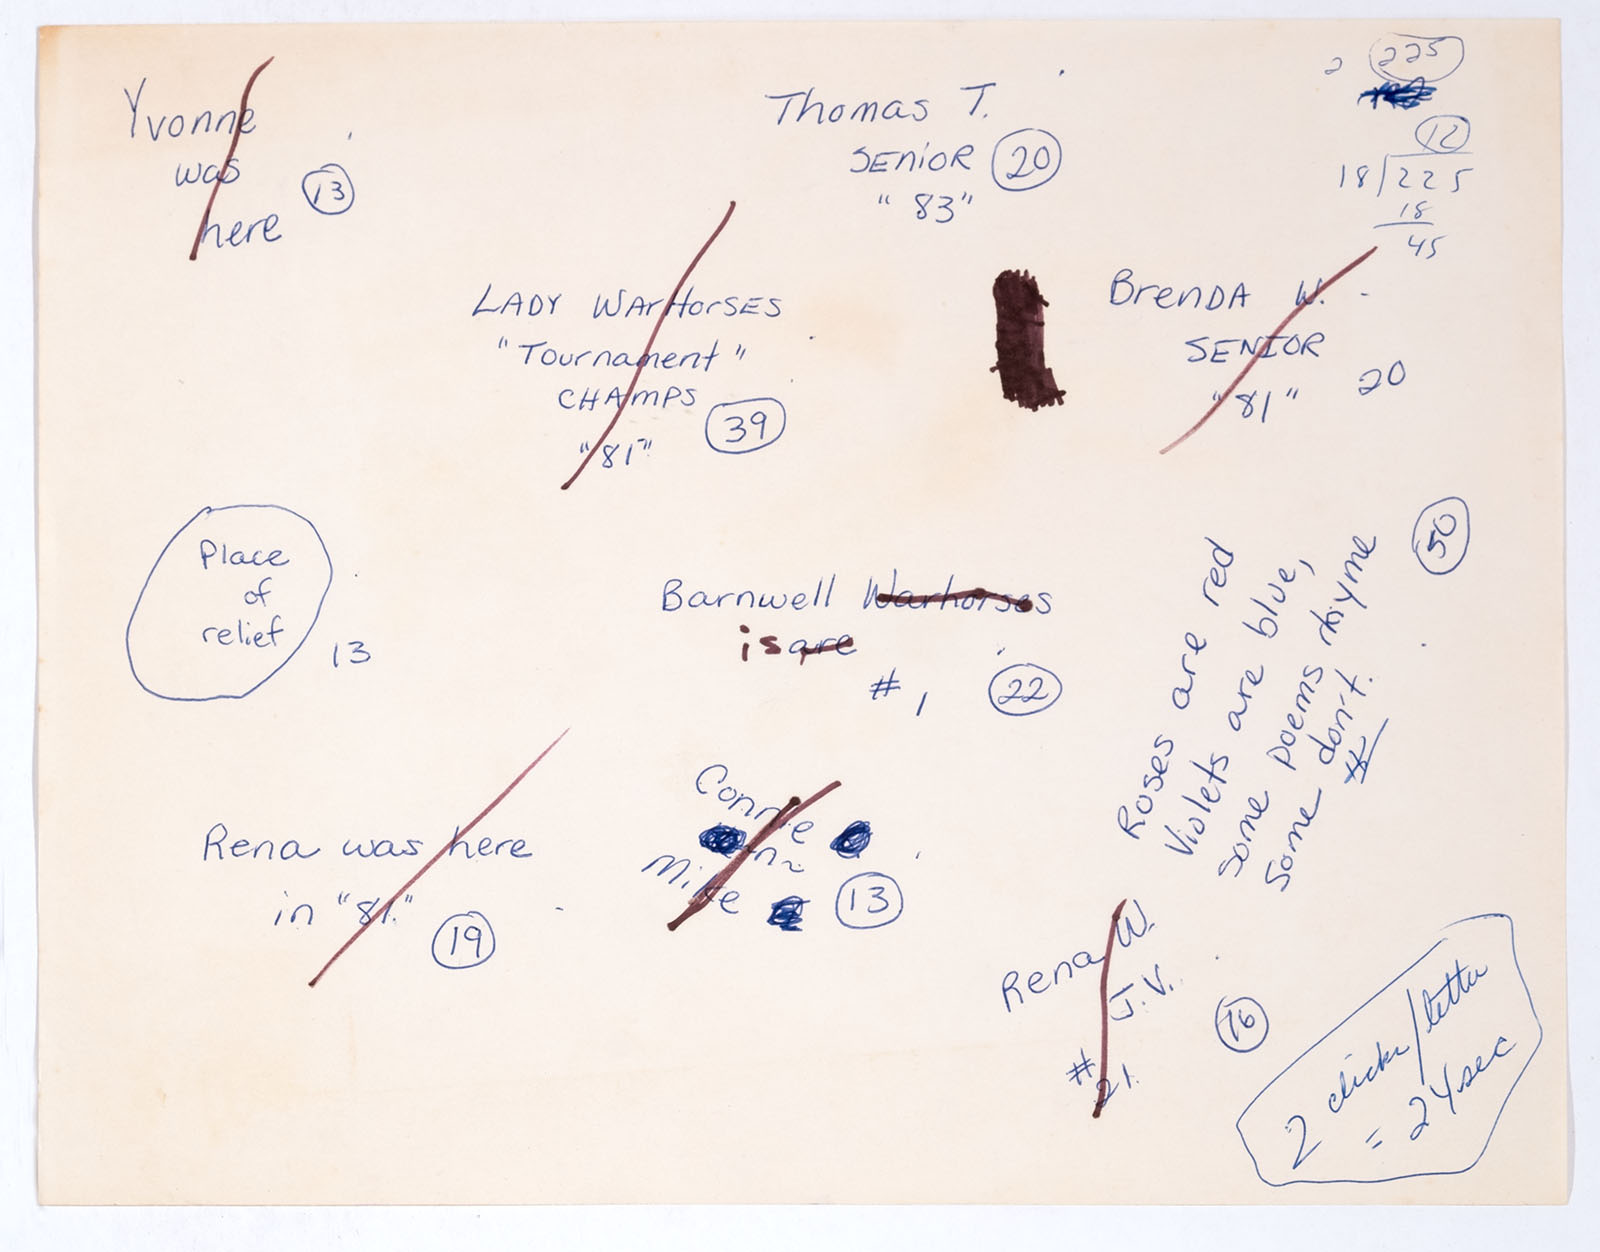 Yvonne
was
here
13
Thomas T.
SENIOR 20
"83"
2 225
12
18 225
18
45
LADY WARHORSES
"Tournament"
CHAMPS
"81"
39
BrenDA W.
SENIOR
"81"
20
Place
of
relief
13
Barnwell Warhorses
is are
# 1
22
Roses are red
Violets are blue,
Some poems rhyme
Some don't.
50
Rena was here
in "81."
19
Connie
Mike
13
Rena W.
J.V.
# 21
16
2 clicks/letter
= 24 sec